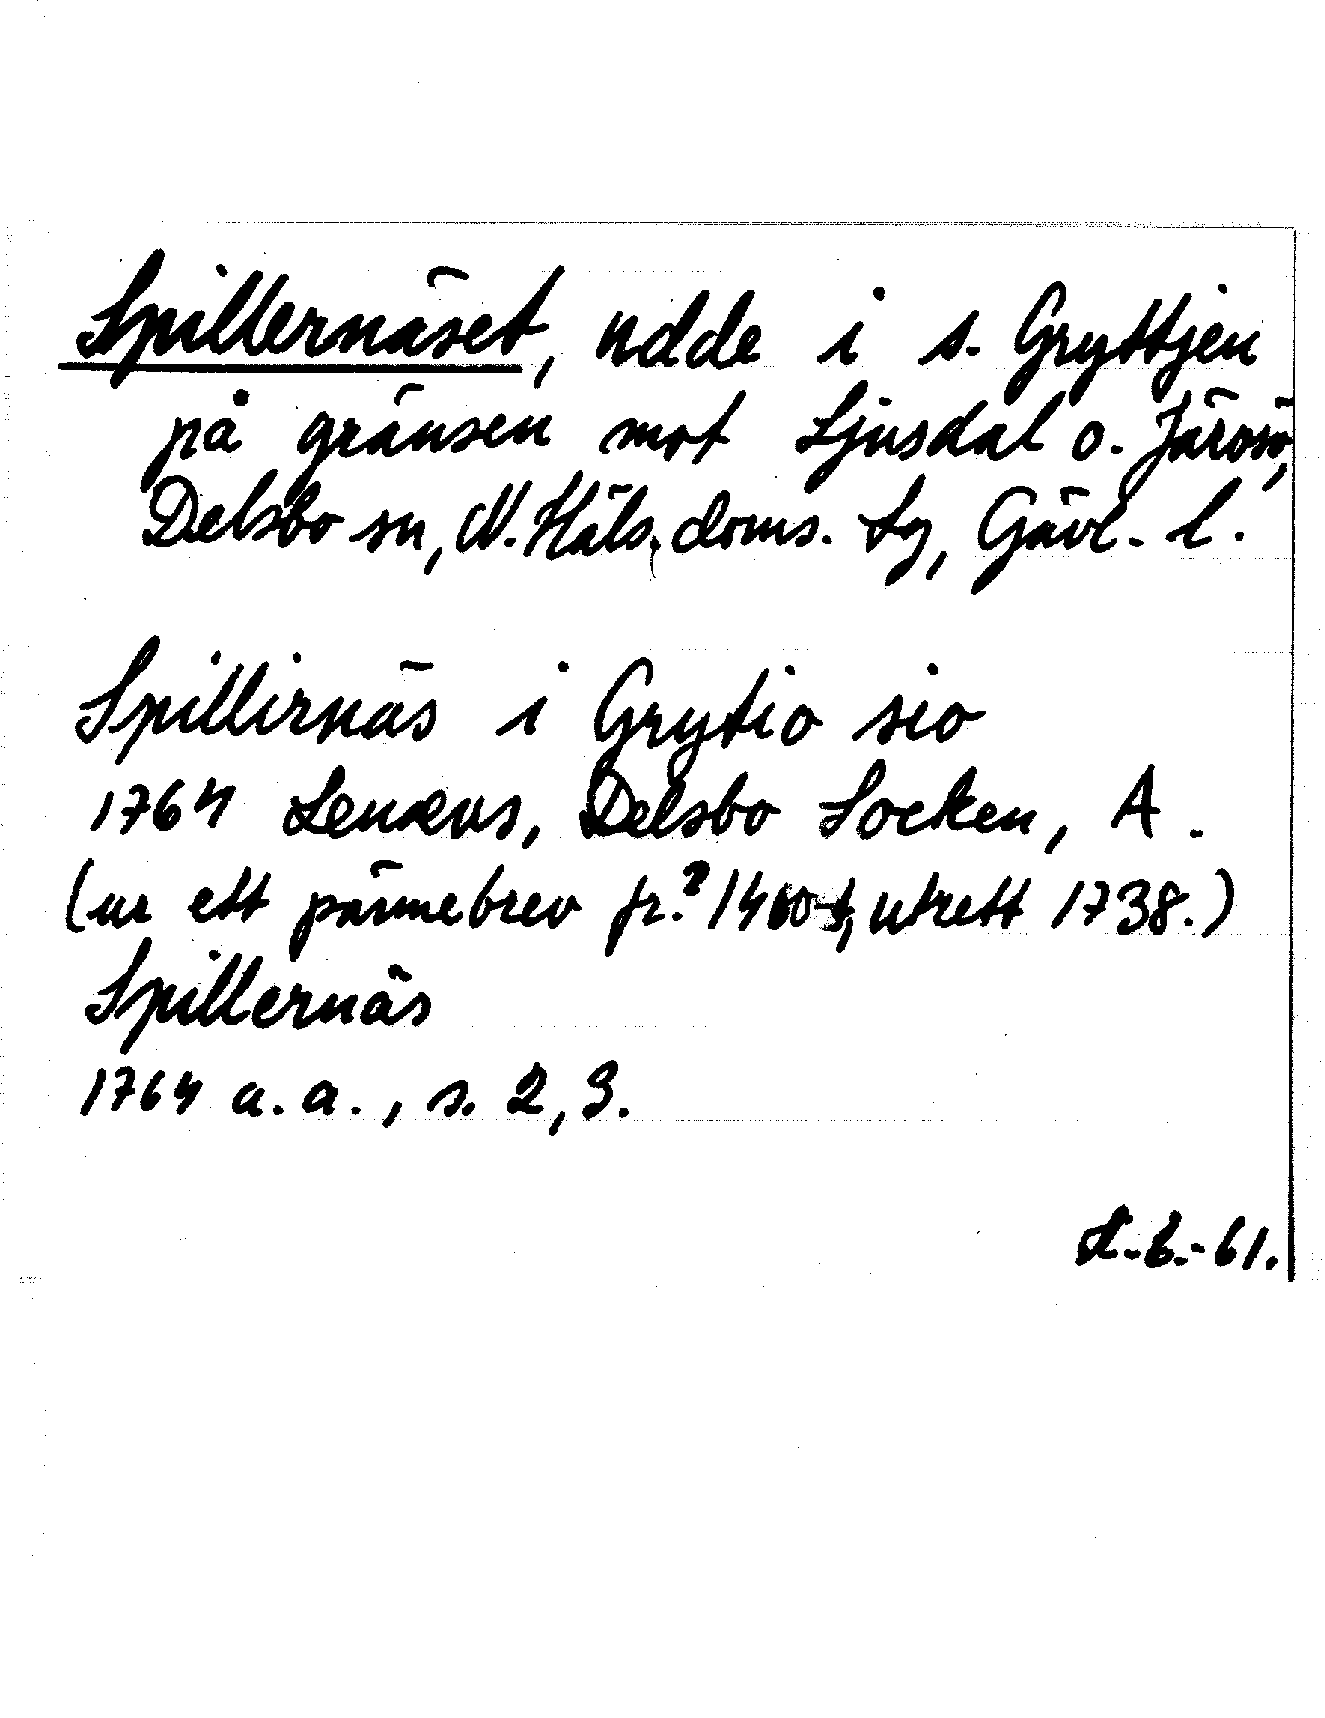 Spillernäset, udde i s. Gryttjen
på gränsen mot Ljusdal o. Järvsö,
Delsbo sn, N. Häls. doms. tg, Gävl. l.
Spillirnäs i Grytio sio
1764 Lenæus, Delsbo Socken, A.
(ur ett pärmebrev fr.? 1460-t, utrett 1738.)
Spillernäs
1764 a.a., s. 2, 3.
-61.